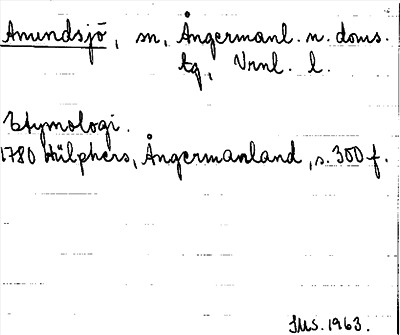 Amundsjö, sn, Ångermanl. n. doms.
tg, Vrnl. l.
Etymologi.
1780 Hülphers, Ångermanland, s. 300 f.
JMs. 1963.